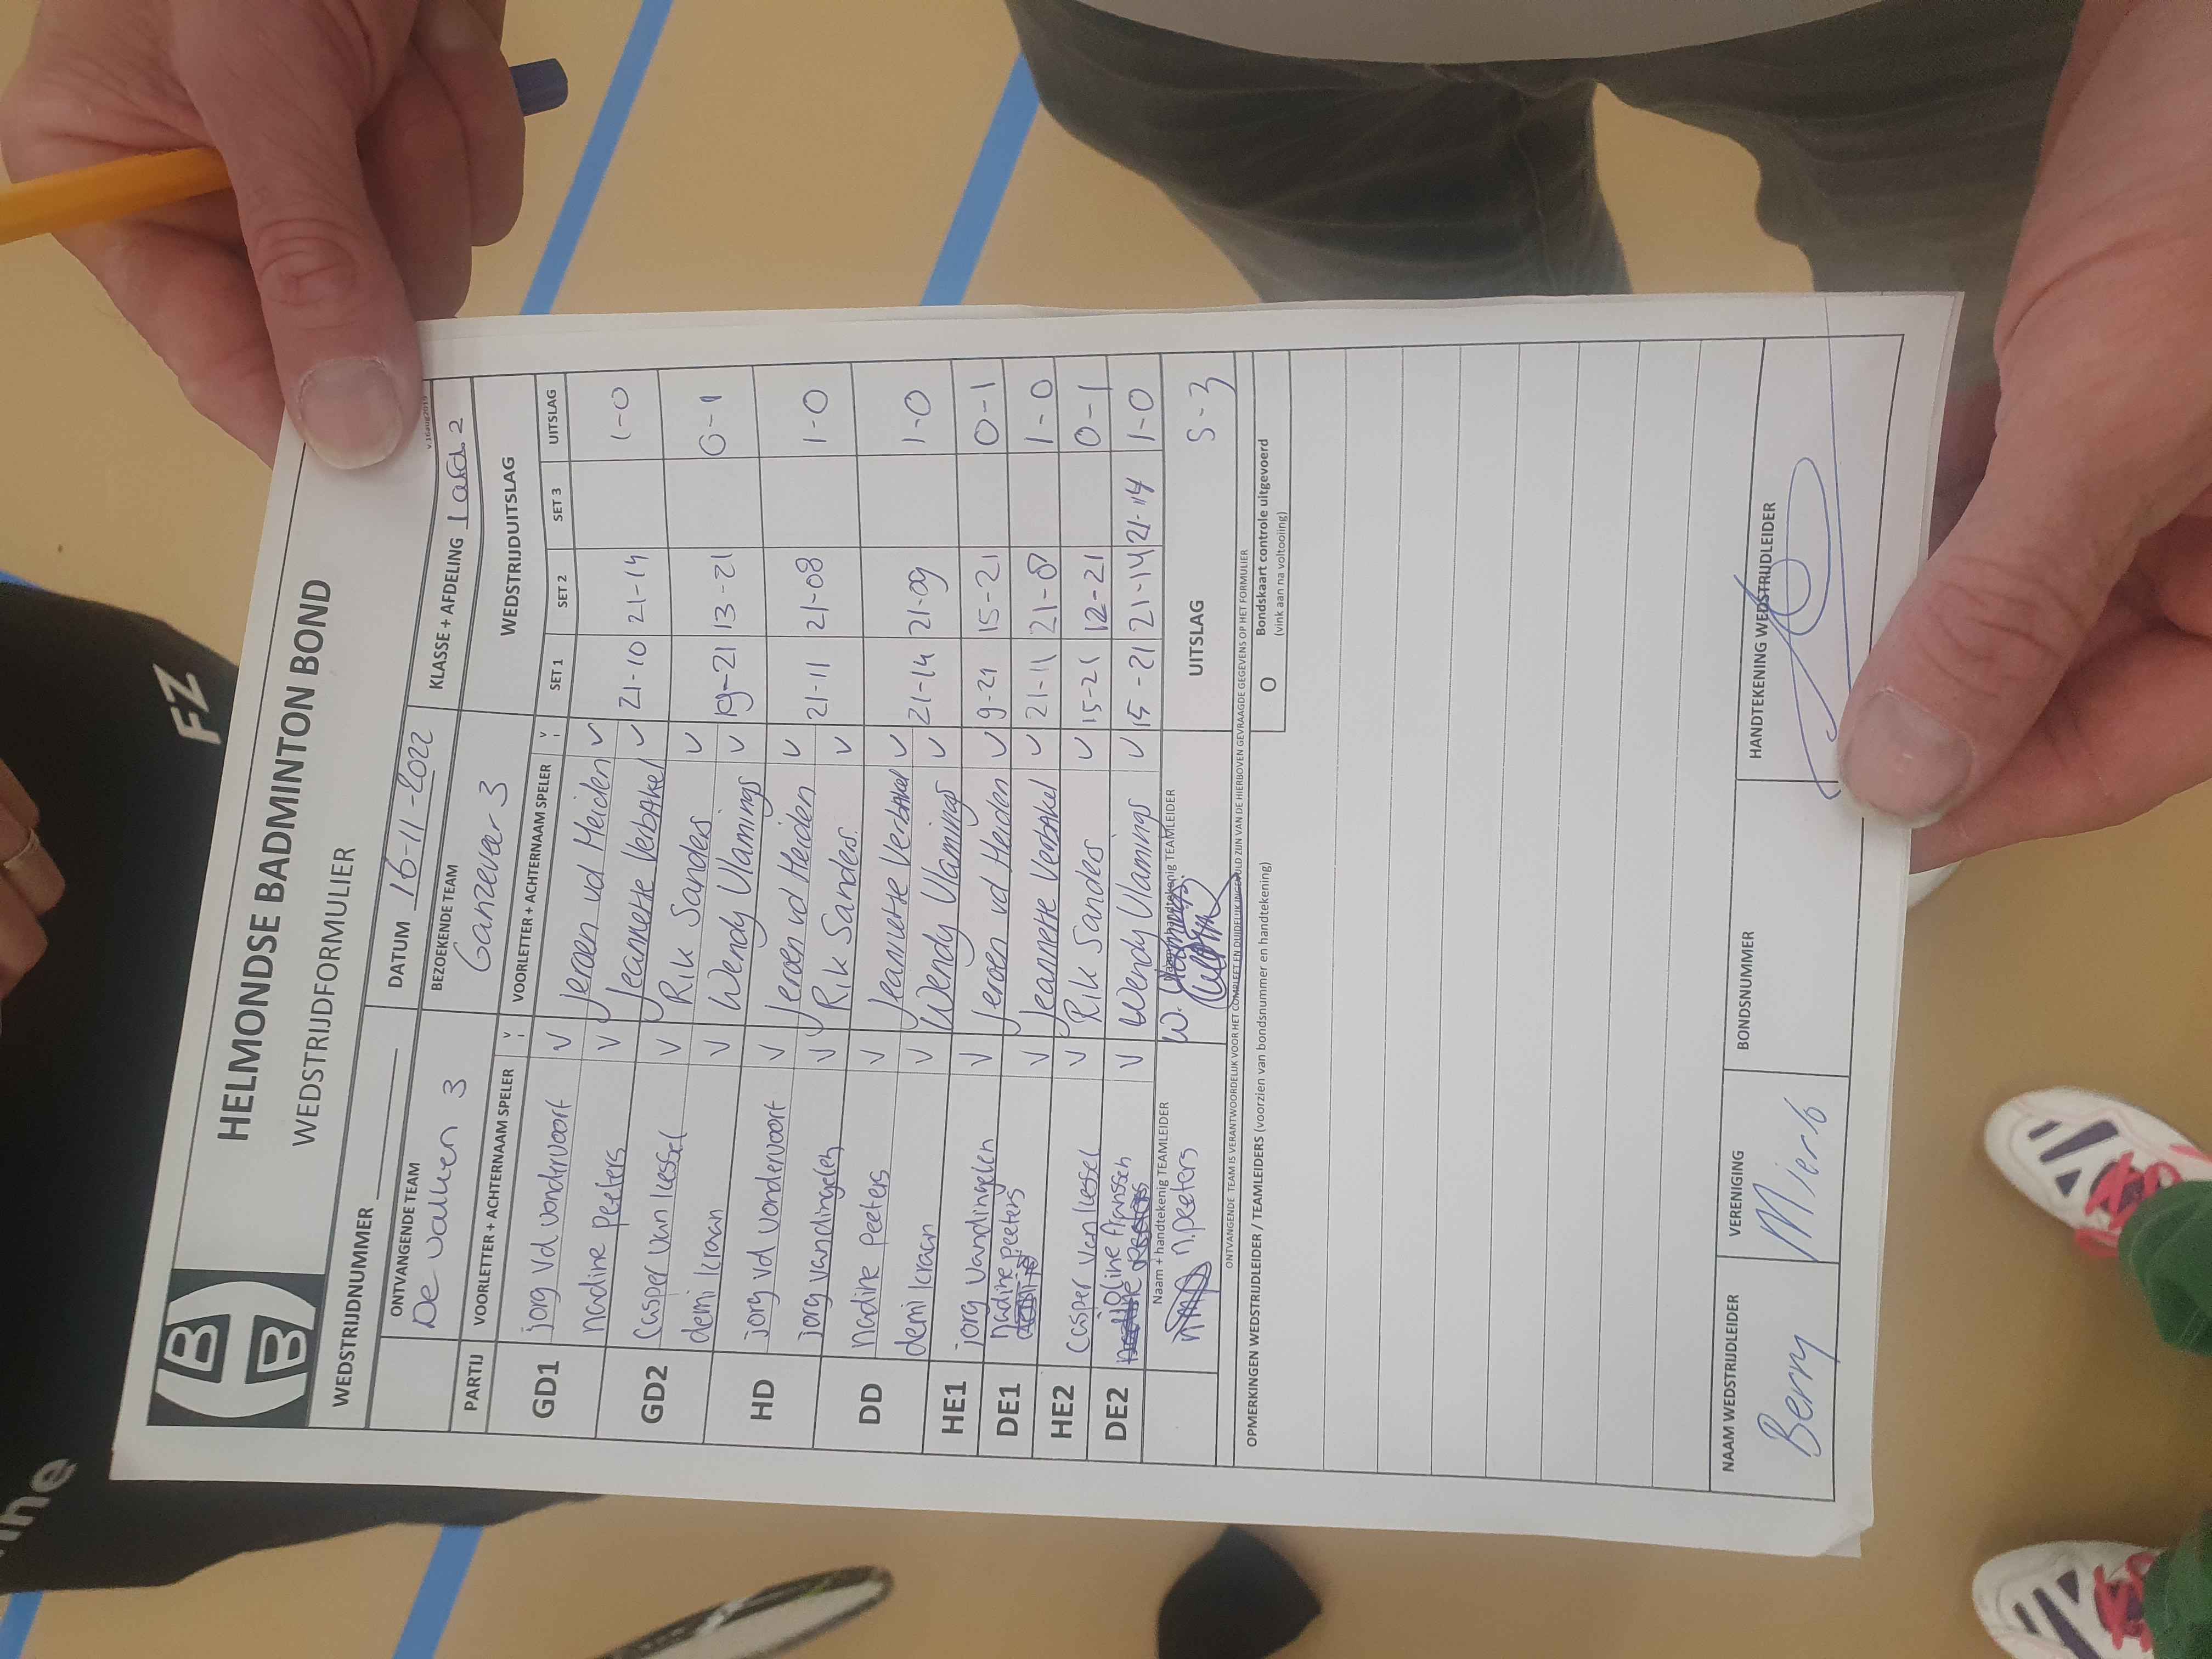 HELMONDSE BADMINTON BOND
WEDSTRIJDFORMULIER
v.16aug2019
WEDSTRIJDNUMMER DATUM 16-11-2022 KLASSE + AFDELING 1 afd. 2
ONTVANGENDE TEAM BEZOEKENDE TEAM WEDSTRIJDUITSLAG
De valken 3 Ganzeveer 3
PARTIJ VOORLETTER + ACHTERNAAM SPELER V VOORLETTER + ACHTERNAAM SPELER V SET 1 SET 2 SET 3 UITSLAG
GD1 jorg vd vondervoort V Jeroen vd Heiden V 21-10 21-14 1-0
nadine peeters V Jeannette Verbakel V
GD2 Casper van kessel V Rik Sanders V 19-21 13-21 0-1
demi kraan V Wendy Vlamings V
HD jorg vd vondervoort V Jeroen vd Heiden V 21-11 21-08 1-0
jorg vandingelen V Rik Sanders. V
DD nadine peeters V Jeannette Verbakel V 21-14 21-09 1-0
demi kraan V Wendy Vlamings V
HE1 jorg vandingelen V Jeroen vd Heiden V 9-21 15-21 0-1
DE1 nadine peeters V Jeannette Verbakel V 21-11 21-07 1-0
HE2 Casper van kessel V Rik Sanders V 15-21 12-21 0-1
DE2 joline franssen V Wendy Vlamings V 15-21 21-14 21-14 1-0
Naam + handtekenig TEAMLEIDER Naam + handtekenig TEAMLEIDER UITSLAG 5-3
n.peeters W. Vlamings
ONTVANGENDE TEAM IS VERANTWOORDELIJK VOOR HET COMPLEET EN DUIDELIJK INGEVULD ZIJN VAN DE HIERBOVEN GEVRAAGDE GEGEVENS OP HET FORMULIER
OPMERKINGEN WEDSTRIJDLEIDER / TEAMLEIDERS (voorzien van bondsnummer en handtekening) O Bondskaart controle uitgevoerd
(vink aan na voltooiing)
NAAM WEDSTRIJDLEIDER VERENIGING BONDSNUMMER HANDTEKENING WEDSTRIJDLEIDER
Berry Mierlo
FZ